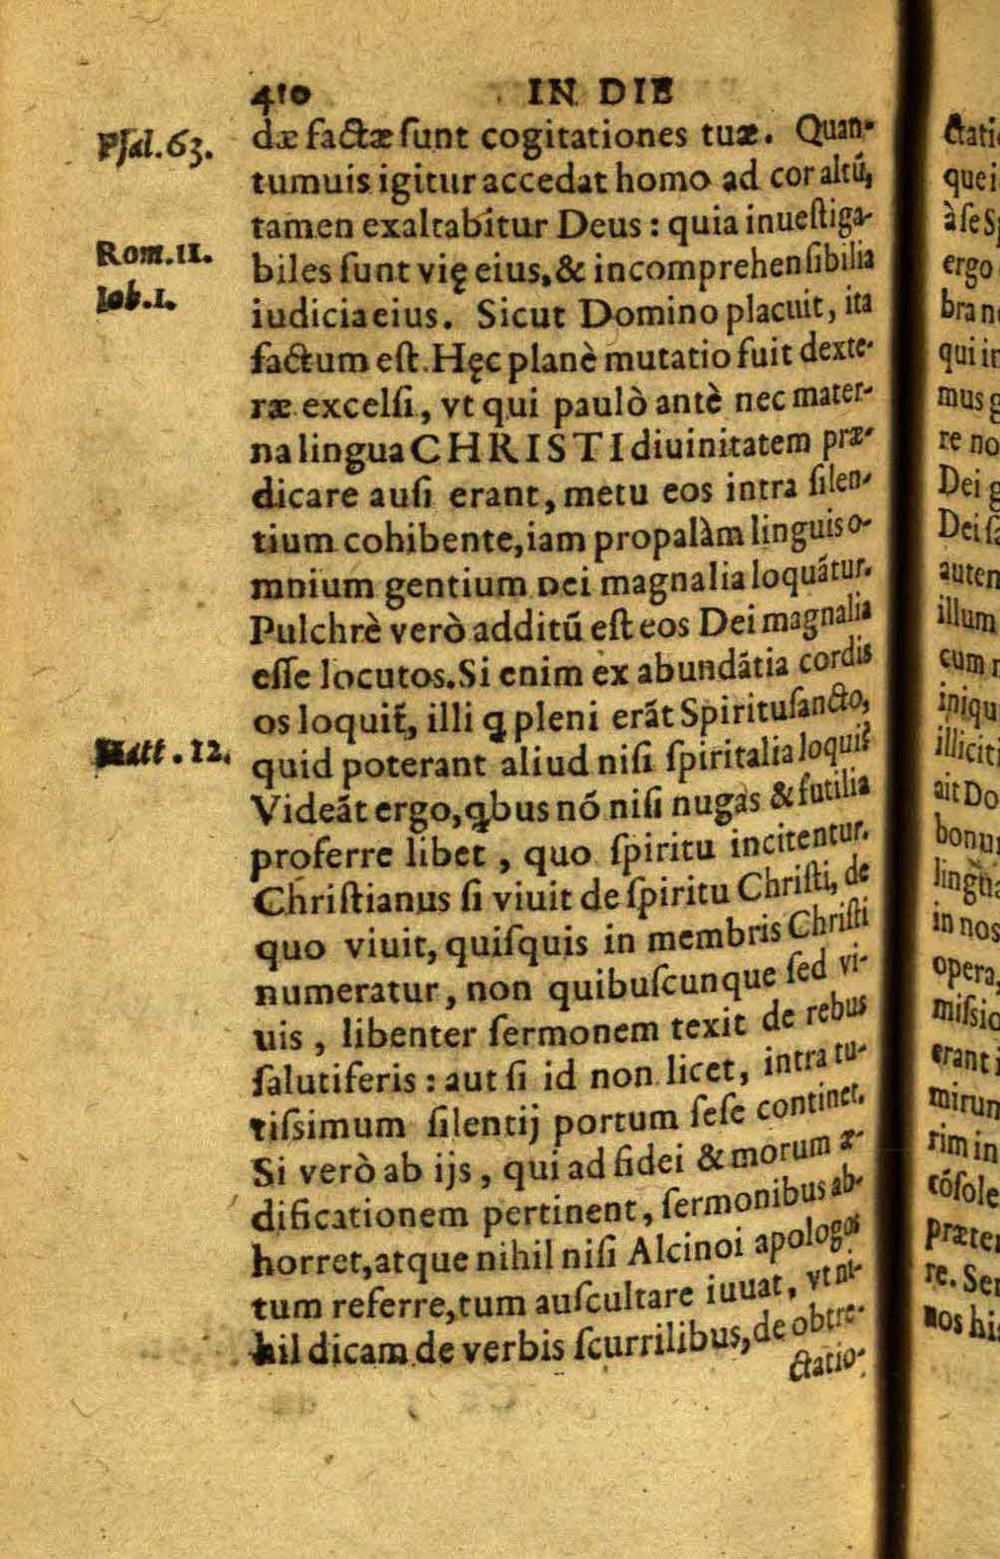 410 IN DIE
Psal.63.
dæ factæ sunt cogitationes tuæ. Quan-
tumuis igitur accedat homo ad cor altũ,
tamen exaltabitur Deus: quia inuestiga-
Rom.11.
biles sunt vię eius, & incomprehensibilia
Iob.1.
iudicia eius. Sicut Domino placuit, ita
factum est. Hęc planè mutatio fuit dexte-
ræ excelsi, vt qui paulò antè nec mater-
na lingua CHRISTI diuinitatem præ-
dicare ausi erant, metu eos intra silen-
tium cohibente, iam propalàm linguis o-
mnium gentium Dei magnalia loquãtur.
Pulchrè verò additũ est eos Dei magnalia
esse locutos. Si enim ex abundãtia cordis
os loquit᷑, illi ꝗ pleni erãt Spiritusancto,
Matt.12.
quid poterant aliud nisi spiritalia loqui?
Videãt ergo, ꝗbus nõ nisi nugas & futilia
proferre libet, quo spiritu incitentur.
Christianus si viuit de spiritu Christi, de
quo viuit, quisquis in membris Christi
numeratur, non quibuscunque sed vi-
uis, libenter sermonem texit de rebus
salutiferis: aut si id non licet, intra tu-
tissimum silentij portum sese continet.
Si verò ab ijs, qui ad fidei & morum æ-
dificationem pertinent, sermonibus ab-
horret, atque nihil nisi Alcinoi apologos
tum referre, tum auscultare iuuat, vt ni-
hil dicam de verbis scurrilibus, de obtre-
ctatio-
ctati
quei
à se S
ergo
bran
qui in
mus
re no
Dei
Dei
auten
illum
cum
iniqu
illiciti
ait Do
bonu
lingu
in nos
opera,
missio
erant i
mirun
rim in
cõsole
præte
re. Se
nos hi